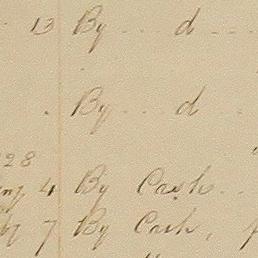 13 By d
By d
28
4 By Cash
7 By Cash,